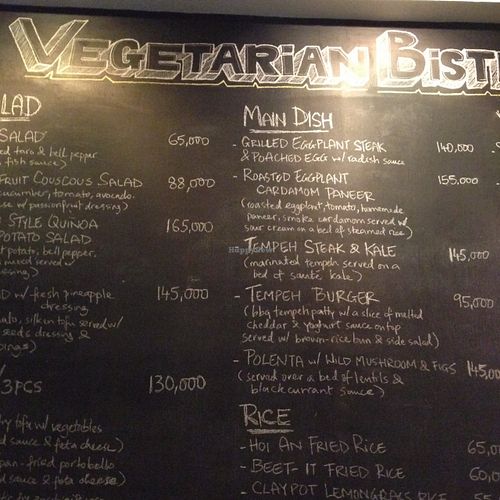 VEGETARIAN BIST
LAD
SALAD 65,000
ed taro & bell pepper
fish sauce)
FRUIT COUSCOUS SALAD 88,000
cucumber, tomato, avocado.
se w/ passionfruit dressing)
STYLE QUINOA 165,000
POTATO SALAD
t potato, bell pepper.
served w/
essing)
D w/ fresh pineapple 145,000
dressing
silken tofu served w/
seeds dressing &
pings)
3PCS 130,000
tofu w/ vegetables
d sauce & feta cheese)
pan-fried portobello
d sauce & feta cheese)
MAIN DISH
- GRILLED EGGPLANT STEAK 140,000
& POACHED EGG w/ radish sauce
- ROASTED EGGPLANT 155,000
CARDAMOM PANEER
(roasted eggplant, tomato, homemade
paneer, smoke cardamom served w/
sour cream on a bed of steamed rice)
- TEMPEH STEAK & KALE 145,000
(marinated tempeh served on a
bed of sauté kale)
- TEMPEH BURGER 95,000
(bbq tempeh patty w/ a slice of melted
cheddar & yoghurt sauce on top
served w/ brown-rice bun & side salad)
- POLENTA w/ WILD MUSHROOM & FIGS 145,00
(served over a bed of lentils &
black currant sauce)
RICE
- HOI AN FRIED RICE 65,0
- BEET-IT FRIED RICE 60,0
- CLAYPOT LEMONGRASS
HappyCow